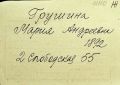 Грушина
Мария Андреевна
1892
2 Слободская 55